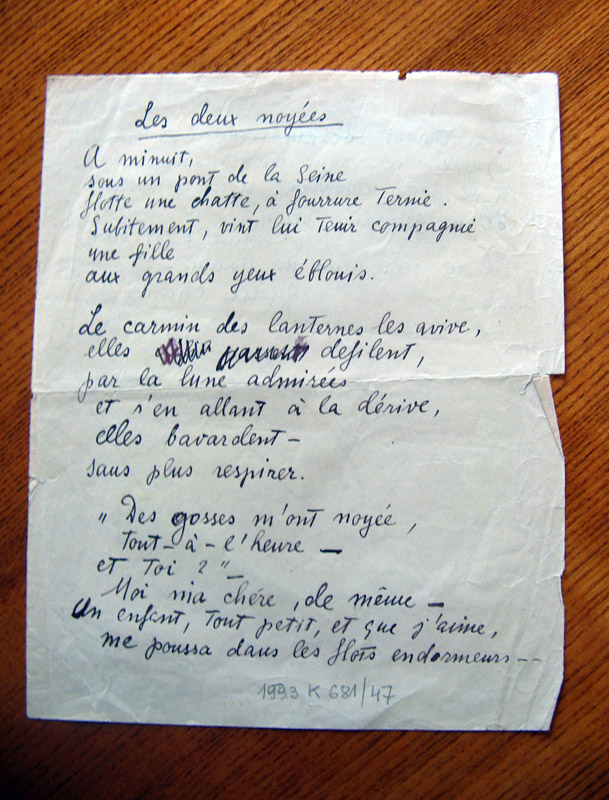 Les deux noyées
A minuit,
sous un pont de la Seine
flotte une chatte, à fourrure ternie.
Subitement, vint lui tenir compagnie
une fille
aux grands yeux éblouis.
Le carmin des lanternes les avive,
elles defilent,
par la lune admirées
et s'en allant à la dérive,
elles bavardent –
sans plus respirer.
„ Des gosses m'ont noyée,
tout-à-l'heure –
et toi ? "–
Moi ma chére, de même –
Un enfant, tout petit, et que j'aime,
me poussa dans les flots endormeurs --
1993 K 681/47